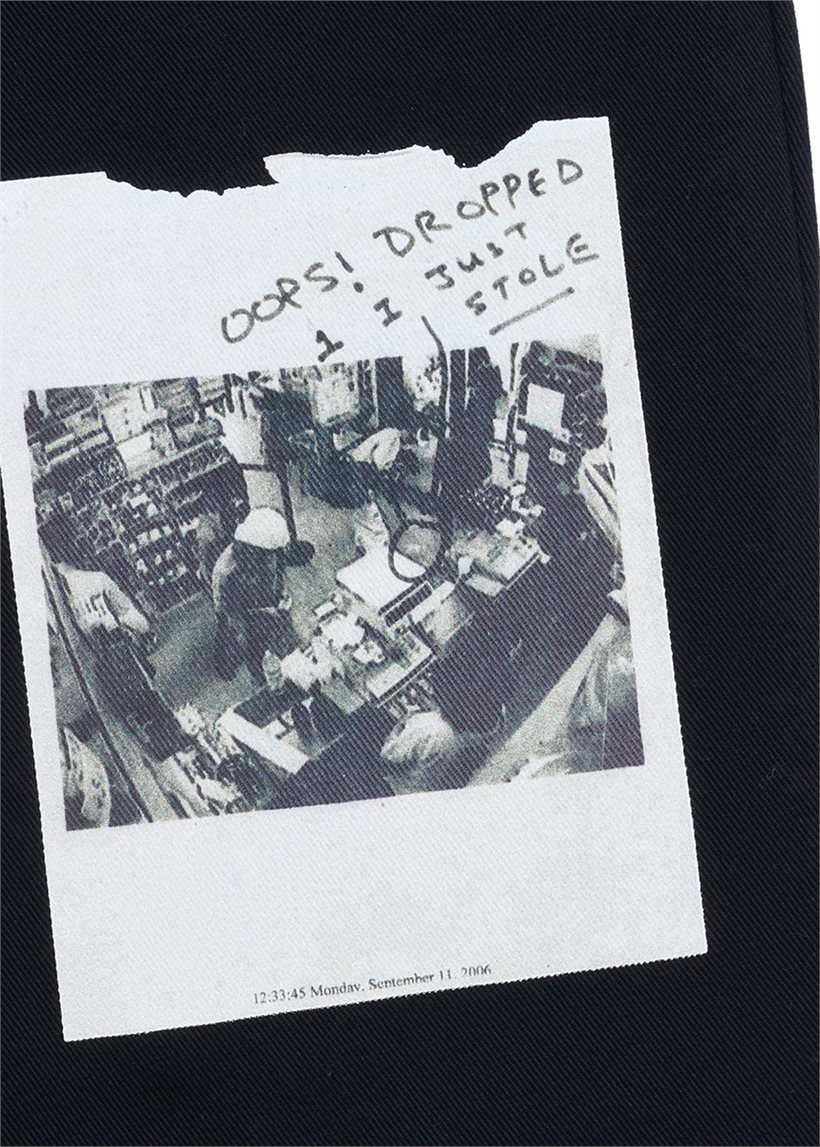 OOPS! DROPPED
1 I JUST
STOLE
12:33:45 Monday, September 11, 2006